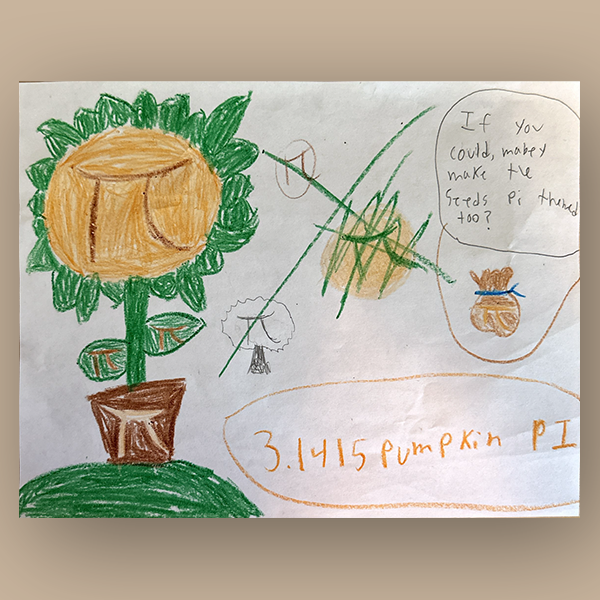 π
π
π
If you
could, mabey
make the
seeds pi themed
too?
π
π
π
π
π
3.1415 pumpkin PI